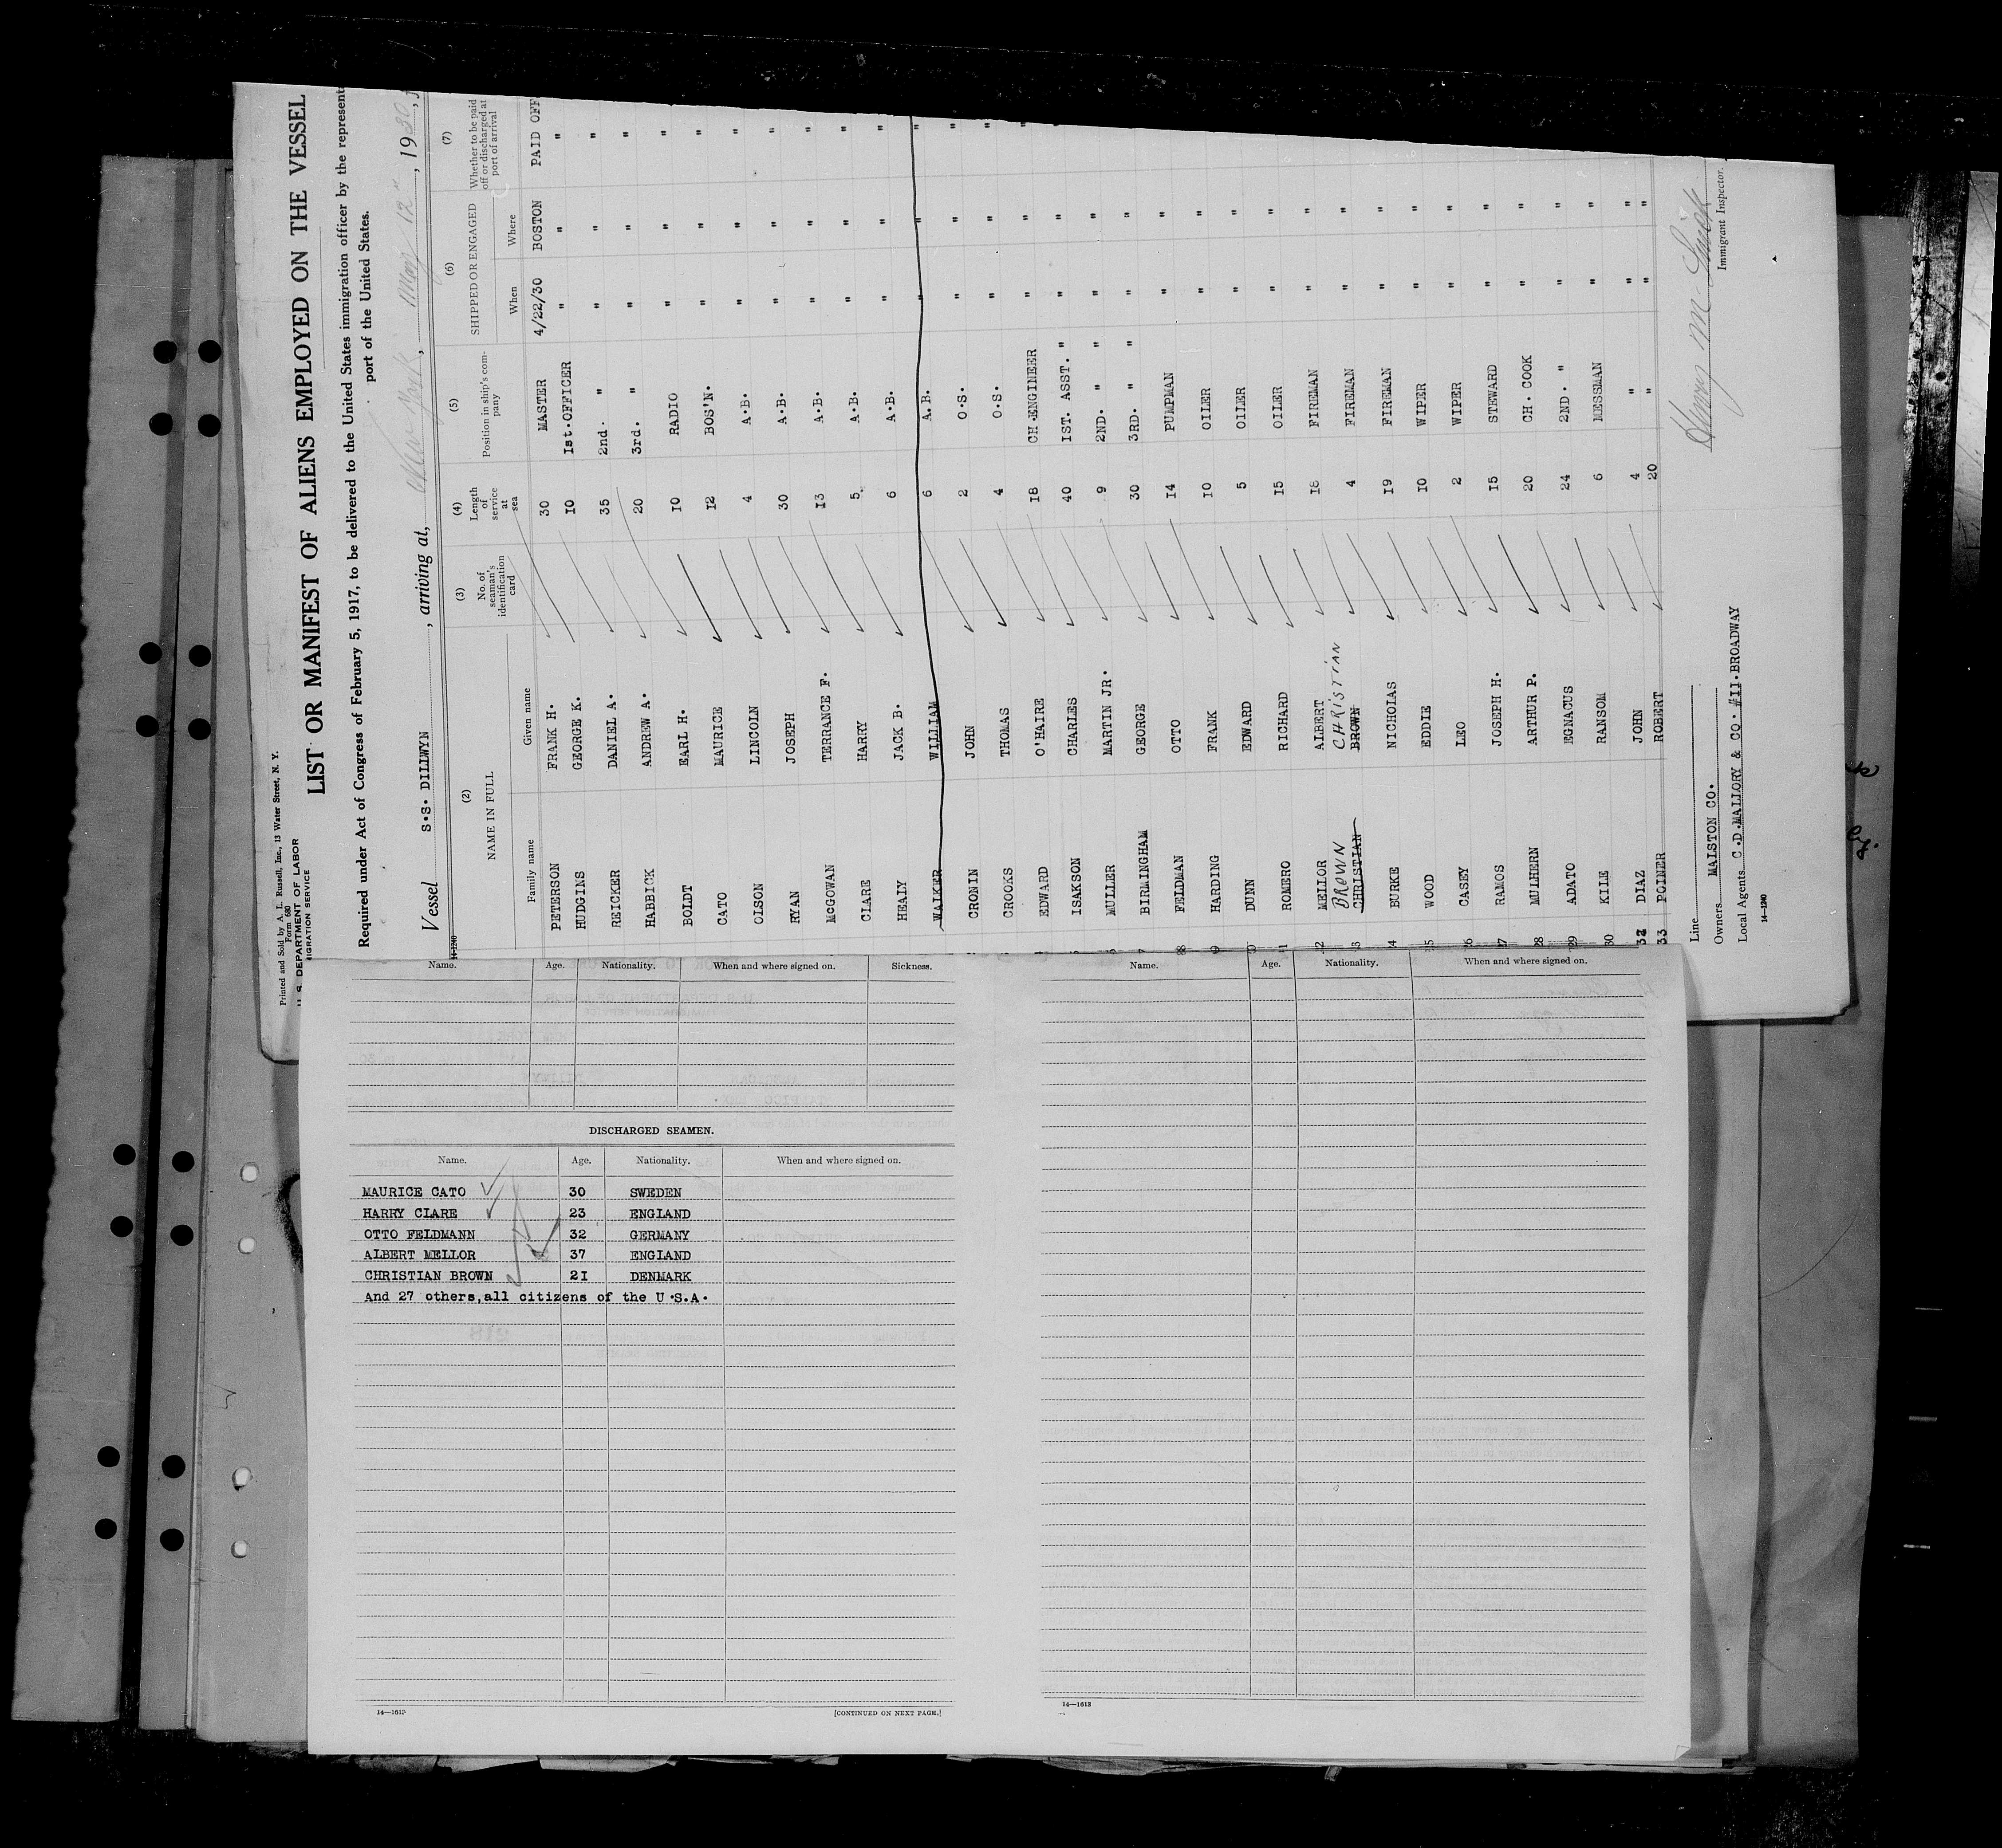 Printed and Sold by A. L. Russell, Inc., 13 Water Street, N. Y.
Form 680
U. S. DEPARTMENT OF LABOR
IMMIGRATION SERVICE
LIST OR MANIFEST OF ALIENS EMPLOYED ON THE VESSEL
Required under Act of Congress of February 5, 1917, to be delivered to the United States immigration officer by the represent
port of the United States.
Vessel S.S. DILLWYN, arriving at, New York, May 12", 1930,
14-1240
(2) (3) (4) (5) (6) (7)
NAME IN FULL No. of seaman's identification card Length of service at sea Position in ship's company SHIPPED OR ENGAGED Whether to be paid off or discharged at port of arrival
Family name Given name When Where
PETERSON FRANK H. 30 MASTER 4/22/30 BOSTON PAID OFF
HUDGINS GEORGE K. 10 1st.OFFICER " " "
REICKER DANIEL A. 35 2nd. " " " "
HABBICK ANDREW A. 20 3rd. " " " "
BOLDT EARL H. 10 RADIO " " "
CATO MAURICE 12 BOS'N. " " "
OLSON LINCOLN 4 A.B. " " "
RYAN JOSEPH 30 A.B. " " "
McGOWAN TERRANCE F. 13 A.B. " " "
CLARE HARRY 5 A.B. " " "
HEALY JACK B. 6 A.B. " " "
WALKER WILLIAM 6 A.B. " " "
CRONIN JOHN 2 O.S. " " "
CROOKS THOMAS 4 O.S. " " "
EDWARD O'HAIRE 18 CH.ENGINEER " " "
ISAKSON CHARLES 40 1ST. ASST. " " "
MULLER MARTIN JR. 9 2ND. " " " "
BIRMINGHAM GEORGE 30 3RD. " " " "
FELDMAN OTTO 14 PUMPMAN " "
HARDING FRANK 10 OILER " "
DUNN EDWARD 5 OILER " "
ROMERO RICHARD 15 OILER " "
MELLOR ALBERT 18 FIREMAN " "
BROWN CHRISTIAN
CHRISTIAN BROWN 4 FIREMAN " "
BURKE NICHOLAS 19 FIREMAN " "
WOOD EDDIE 10 WIPER " "
CASEY LEO 2 WIPER " "
RAMOS JOSEPH H. 15 STEWARD " "
MULHERN ARTHUR P. 20 CH. COOK " "
ADATO EGNACUS 24 2ND. " " "
30 KILE RANSOM 6 MESSMAN " "
32 DIAZ JOHN 4 " " "
33 POINER ROBERT 20 " " "
Line
Owners MALSTON CO.
Local Agents C.D.MALLORY & CO. #11.BROADWAY
14-1240
Henry M. Smith
Immigrant Inspector.
Name. Age. Nationality. When and where signed on. Sickness.
DISCHARGED SEAMEN.
Name. Age. Nationality. When and where signed on.
MAURICE CATO 30 SWEDEN
HARRY CLARE 23 ENGLAND
OTTO FELDMANN 32 GERMANY
ALBERT MELLOR 37 ENGLAND
CHRISTIAN BROWN 21 DENMARK
And 27 others,all citizens of the U.S.A.
14—1613
[CONTINUED ON NEXT PAGE.]
Name. Age. Nationality. When and where signed on.
14—1613